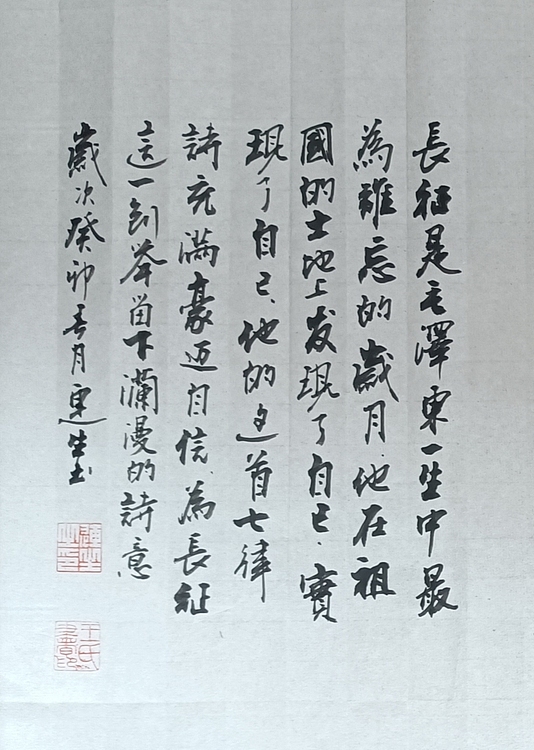 長征是毛澤東一生中最
為難忘的歲月.他在祖
國的土地上发現了自己.實
現了自己.他的这首七律
詩充滿豪迈自信.為長征
這一創举留下瀾漫的詩意
歲次癸卯春月連生书